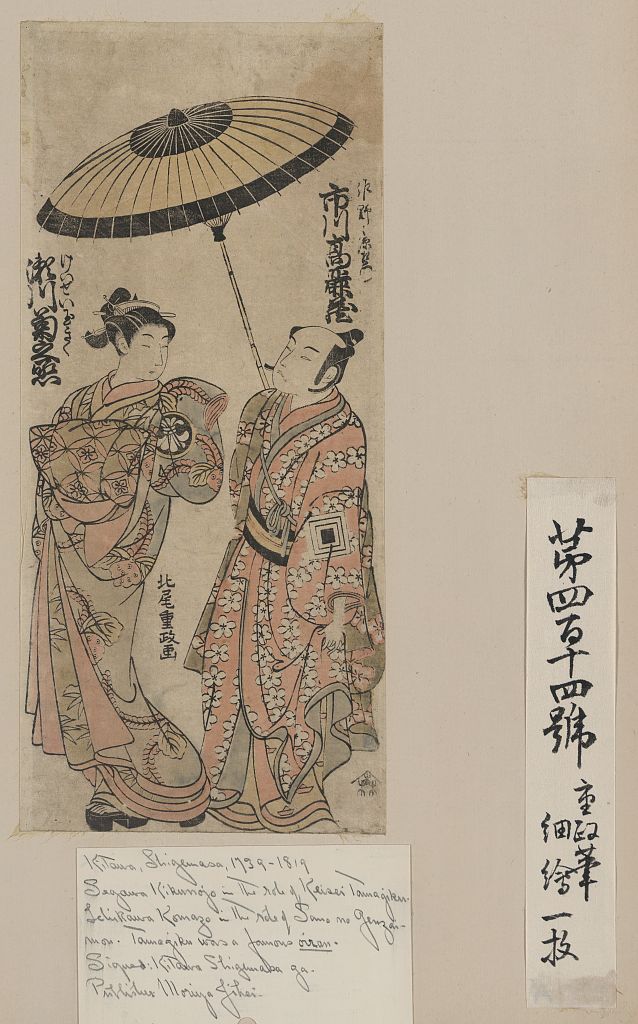 市川高麗藏
けいせい
瀬川菊之丞
北尾重政画
第四百十四號
重政筆
細繪一枚
Kitawo, Shigemasa, 1739-1819
Segawa Kikunojo in the role of Keisei Tamagiku.
Ichikawa Komazo in the role of Sano no Genzai-
mon. Tamagiku was a famous oiran.
Signed: Kitawo Shigemasa ga.
Publisher Moriya Jihei.